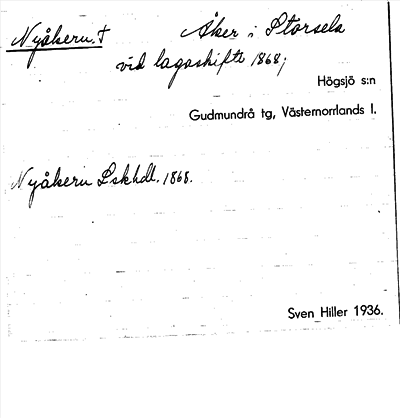 Nyåkern. † Åker i Storsela
vid lagaskifte 1868;
Högsjö s:n
Gudmundrå tg, Västernorrlands l.
Nyåkern Lskhdl. 1868.
Sven Hiller 1936.